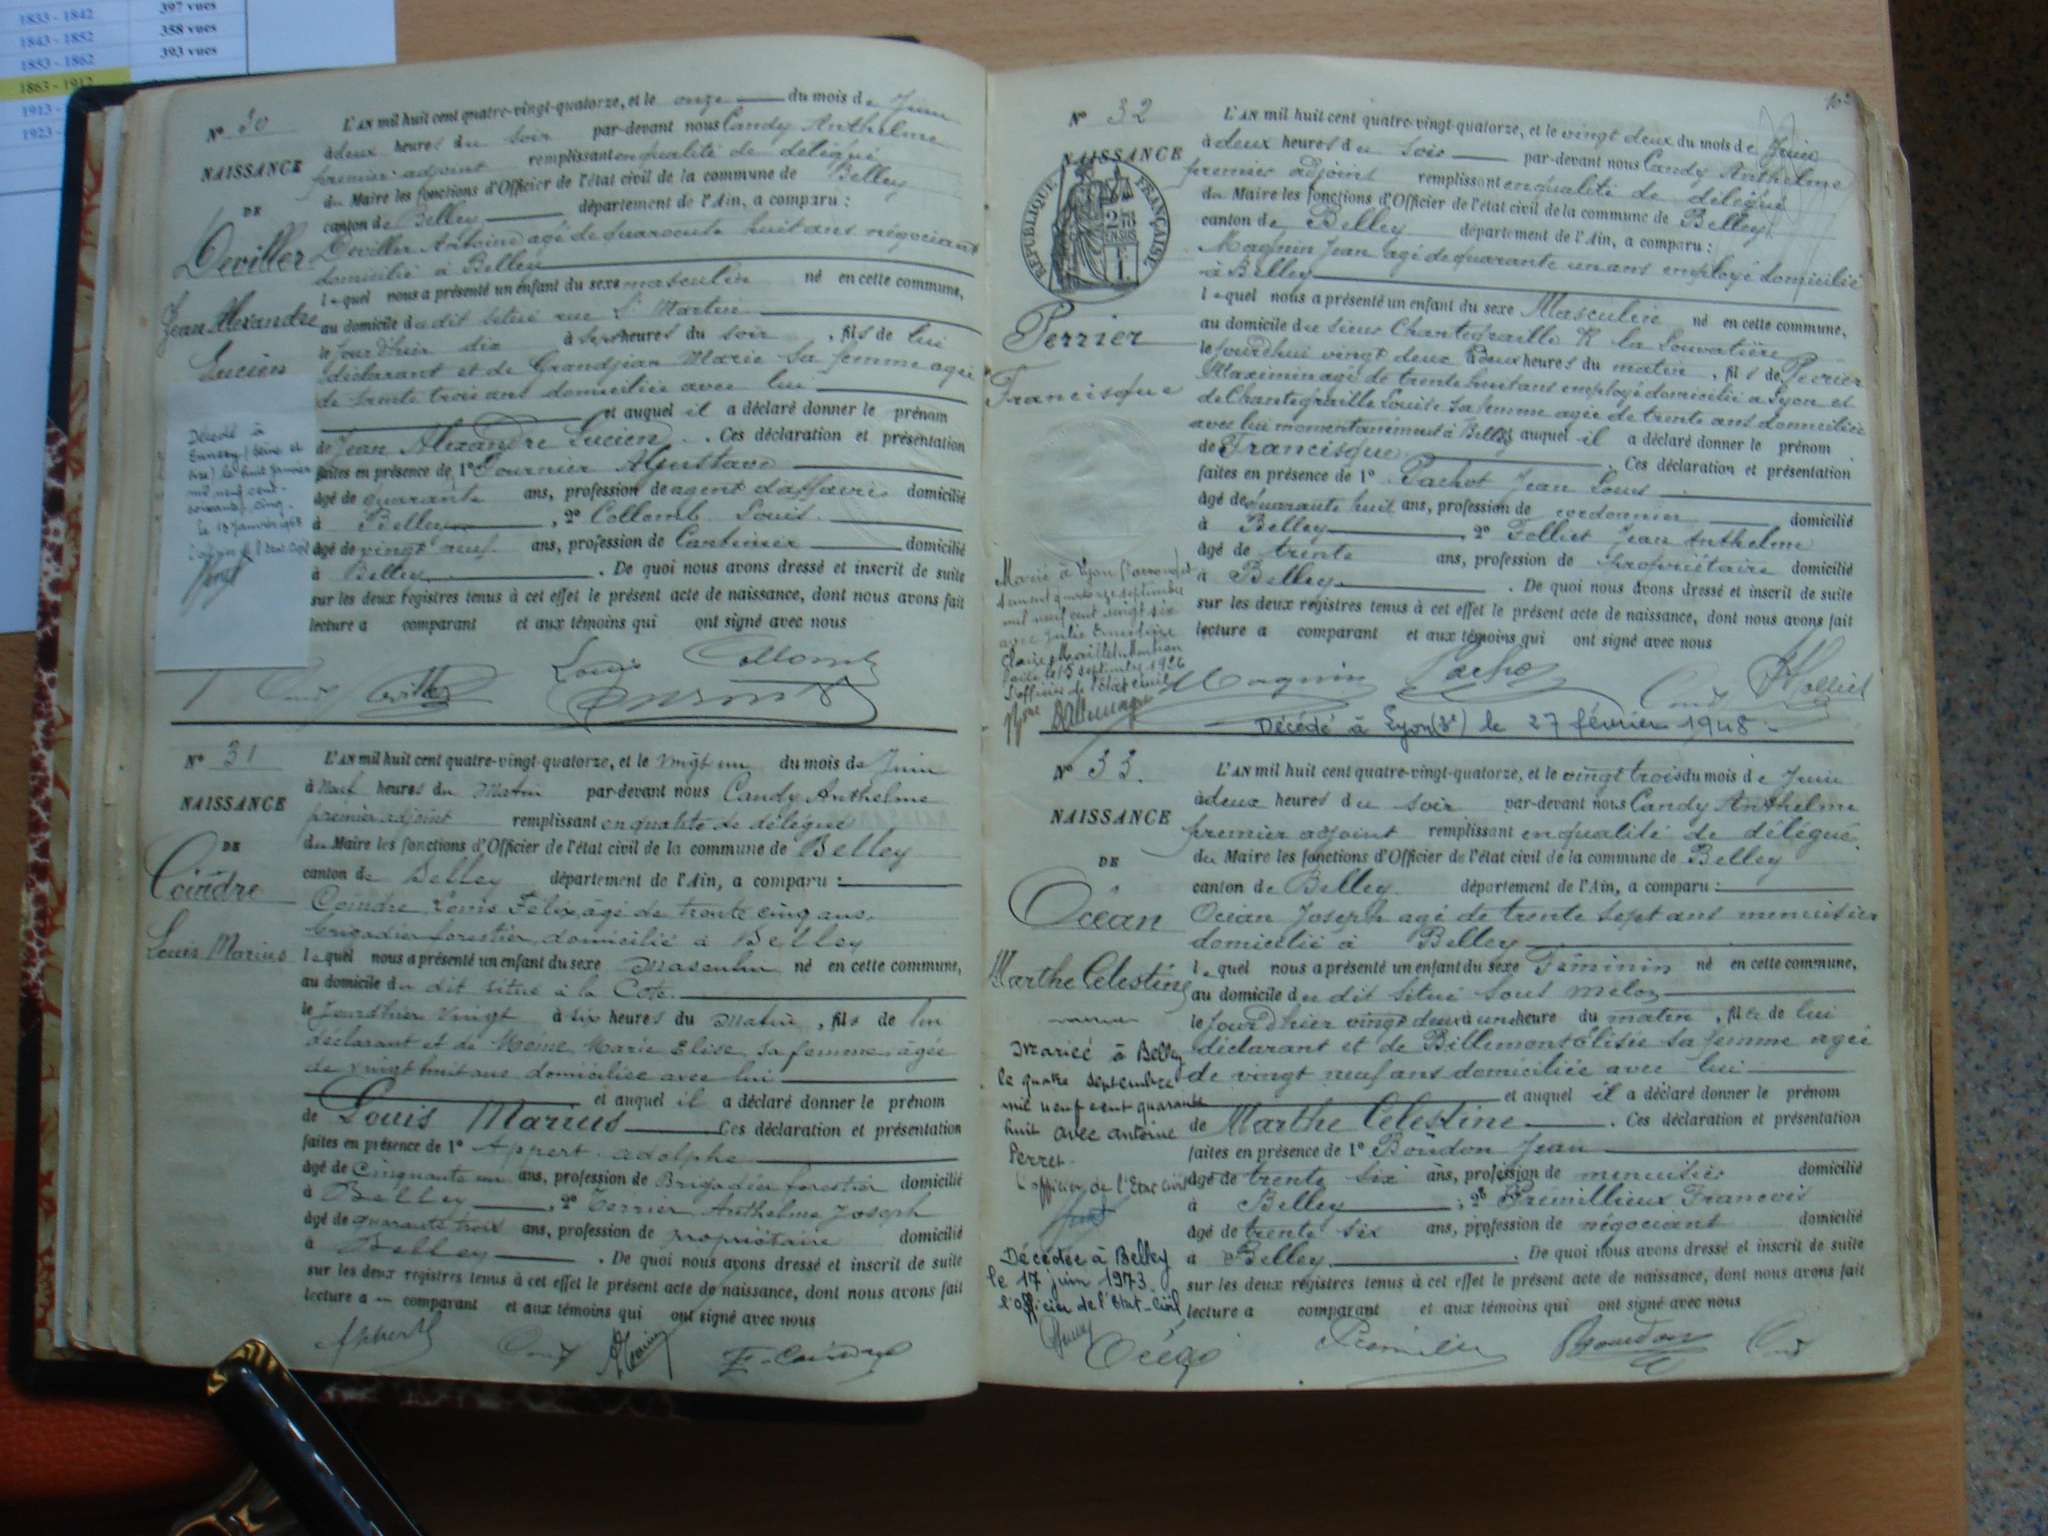 1833 - 1842 397 vues
1843 - 1852 358 vues
1853 - 1862 393 vues
1863 - 1912
1913 -
1923 -
N° 30
NAISSANCE
DE
Deviller
Jean Alexandre
Lucien
Décédé à
le huit janvier
mil neuf cent
soixante cinq
L'AN mil huit cent quatre-vingt-quatorze, et le onze du mois de Juin
à deux heures du soir par-devant nous Candy Anthelme
premier adjoint remplissant en qualité de délégué
du Maire les fonctions d'Officier de l'état civil de la commune de Belley
canton de Belley département de l'Ain, a comparu :
Deviller Antoine agé de quarante huit ans négociant
domicilié à Belley
lequel nous a présenté un enfant du sexe masculin né en cette commune,
au domicile du dit situé rue St Martin
le jour d'hier dix à sept heures du soir, fils de lui
déclarant et de Grandjean Marie sa femme agée
de trente trois ans domiciliée avec lui
et auquel il a déclaré donner le prénom
de Jean Alexandre Lucien. Ces déclaration et présentation
faites en présence de 1° Fournier Gustave
âgé de quarante ans, profession de agent d'affaires domicilié
à Belley, 2° Collomb Louis
âgé de vingt neuf ans, profession de domicilié
à Belley. De quoi nous avons dressé et inscrit de suite
sur les deux registres tenus à cet effet le présent acte de naissance, dont nous avons fait
lecture a comparant et aux témoins qui ont signé avec nous
Louis Collomb
N° 31
NAISSANCE
DE
Coindre
Louis Marius
L'AN mil huit cent quatre-vingt-quatorze, et le vingt un du mois de Juin
à Neuf heures du Matin par-devant nous Candy Anthelme
premier adjoint remplissant en qualité de délégué
du Maire les fonctions d'Officier de l'état civil de la commune de Belley
canton de Belley département de l'Ain, a comparu :
Coindre Louis Felix âgé de trente cinq ans,
brigadier forestier domicilié à Belley
lequel nous a présenté un enfant du sexe Masculin né en cette commune,
au domicile du dit situé à la Cote
le Jour d'hier Vingt à six heures du Matin, fils de lui
déclarant et de Marie Elise, sa femme âgée
de vingt huit ans domiciliée avec lui
et auquel il a déclaré donner le prénom
de Louis Marius Ces déclaration et présentation
faites en présence de 1° Appert adolphe
âgé de Cinquante un ans, profession de Brigadier forestier domicilié
à Belley, 2° Terrier Anthelme Joseph
âgé de quarante trois ans, profession de propriétaire domicilié
à Belley. De quoi nous avons dressé et inscrit de suite
sur les deux registres tenus à cet effet le présent acte de naissance, dont nous avons fait
lecture a u comparant et aux témoins qui ont signé avec nous
N° 32
NAISSANCE
RÉPUBLIQUE FRANÇAISE
Perrier
Francisque
Marié à Lyon
mil neuf cent vingt six
avec Julie
15 septembre 1926
L'officier de l'état civil
L'AN mil huit cent quatre-vingt-quatorze, et le vingt deux du mois de Juin
à deux heures du soir par-devant nous Candy Anthelme
premier adjoint remplissant en qualité de délégué
du Maire les fonctions d'Officier de l'état civil de la commune de Belley
canton de Belley département de l'Ain, a comparu :
Magnin Jean agé de quarante un ans employé domicilié
à Belley
lequel nous a présenté un enfant du sexe Masculin né en cette commune,
au domicile du sieur Chantegraille R. la Louvatière
le jourd'hui vingt deux à deux heures du matin, fils de Perrier
Maximin agé de trente huit ans employé domicilié à Lyon et
de Chantegraille Louise sa femme agée de trente ans domiciliée
avec lui momentanément à Belley auquel il a déclaré donner le prénom
de Francisque. Ces déclaration et présentation
faites en présence de 1° Pachot Jean Louis
âgé de quarante huit ans, profession de cordonnier domicilié
à Belley, 2° Folliet Jean Anthelme
âgé de trente ans, profession de propriétaire domicilié
à Belley. De quoi nous avons dressé et inscrit de suite
sur les deux registres tenus à cet effet le présent acte de naissance, dont nous avons fait
lecture a comparant et aux témoins qui ont signé avec nous
Magnin Pachot
Décédé à Lyon (3e) le 27 février 1948.
N° 33.
NAISSANCE
DE
Océan
Marthe Celestine
Mariée à Belley
le quatre septembre
mil neuf cent quarante
huit avec antoine
Perret
l'officier de l'Etat civil
Décédée à Belley
le 17 juin 1973
l'officier de l'Etat-Civil
L'AN mil huit cent quatre-vingt-quatorze, et le vingt trois du mois de Juin
à deux heures du soir par-devant nous Candy Anthelme
premier adjoint remplissant en qualité de délégué
du Maire les fonctions d'Officier de l'état civil de la commune de Belley
canton de Belley département de l'Ain, a comparu :
Océan Joseph agé de trente sept ans menuisier
domicilié à Belley
lequel nous a présenté un enfant du sexe Féminin né en cette commune,
au domicile du dit situé sous
le jour d'hier vingt deux à une heure du matin, fille de lui
déclarant et de Billemont Elisée sa femme agée
de vingt neuf ans domiciliée avec lui
et auquel il a déclaré donner le prénom
de Marthe Celestine. Ces déclaration et présentation
faites en présence de 1° Boudon Jean
âgé de trente six ans, profession de menuisier domicilié
à Belley, 2° Premillieux Francois
âgé de trente six ans, profession de négociant domicilié
à Belley. De quoi nous avons dressé et inscrit de suite
sur les deux registres tenus à cet effet le présent acte de naissance, dont nous avons fait
lecture a comparant et aux témoins qui ont signé avec nous
Boudon